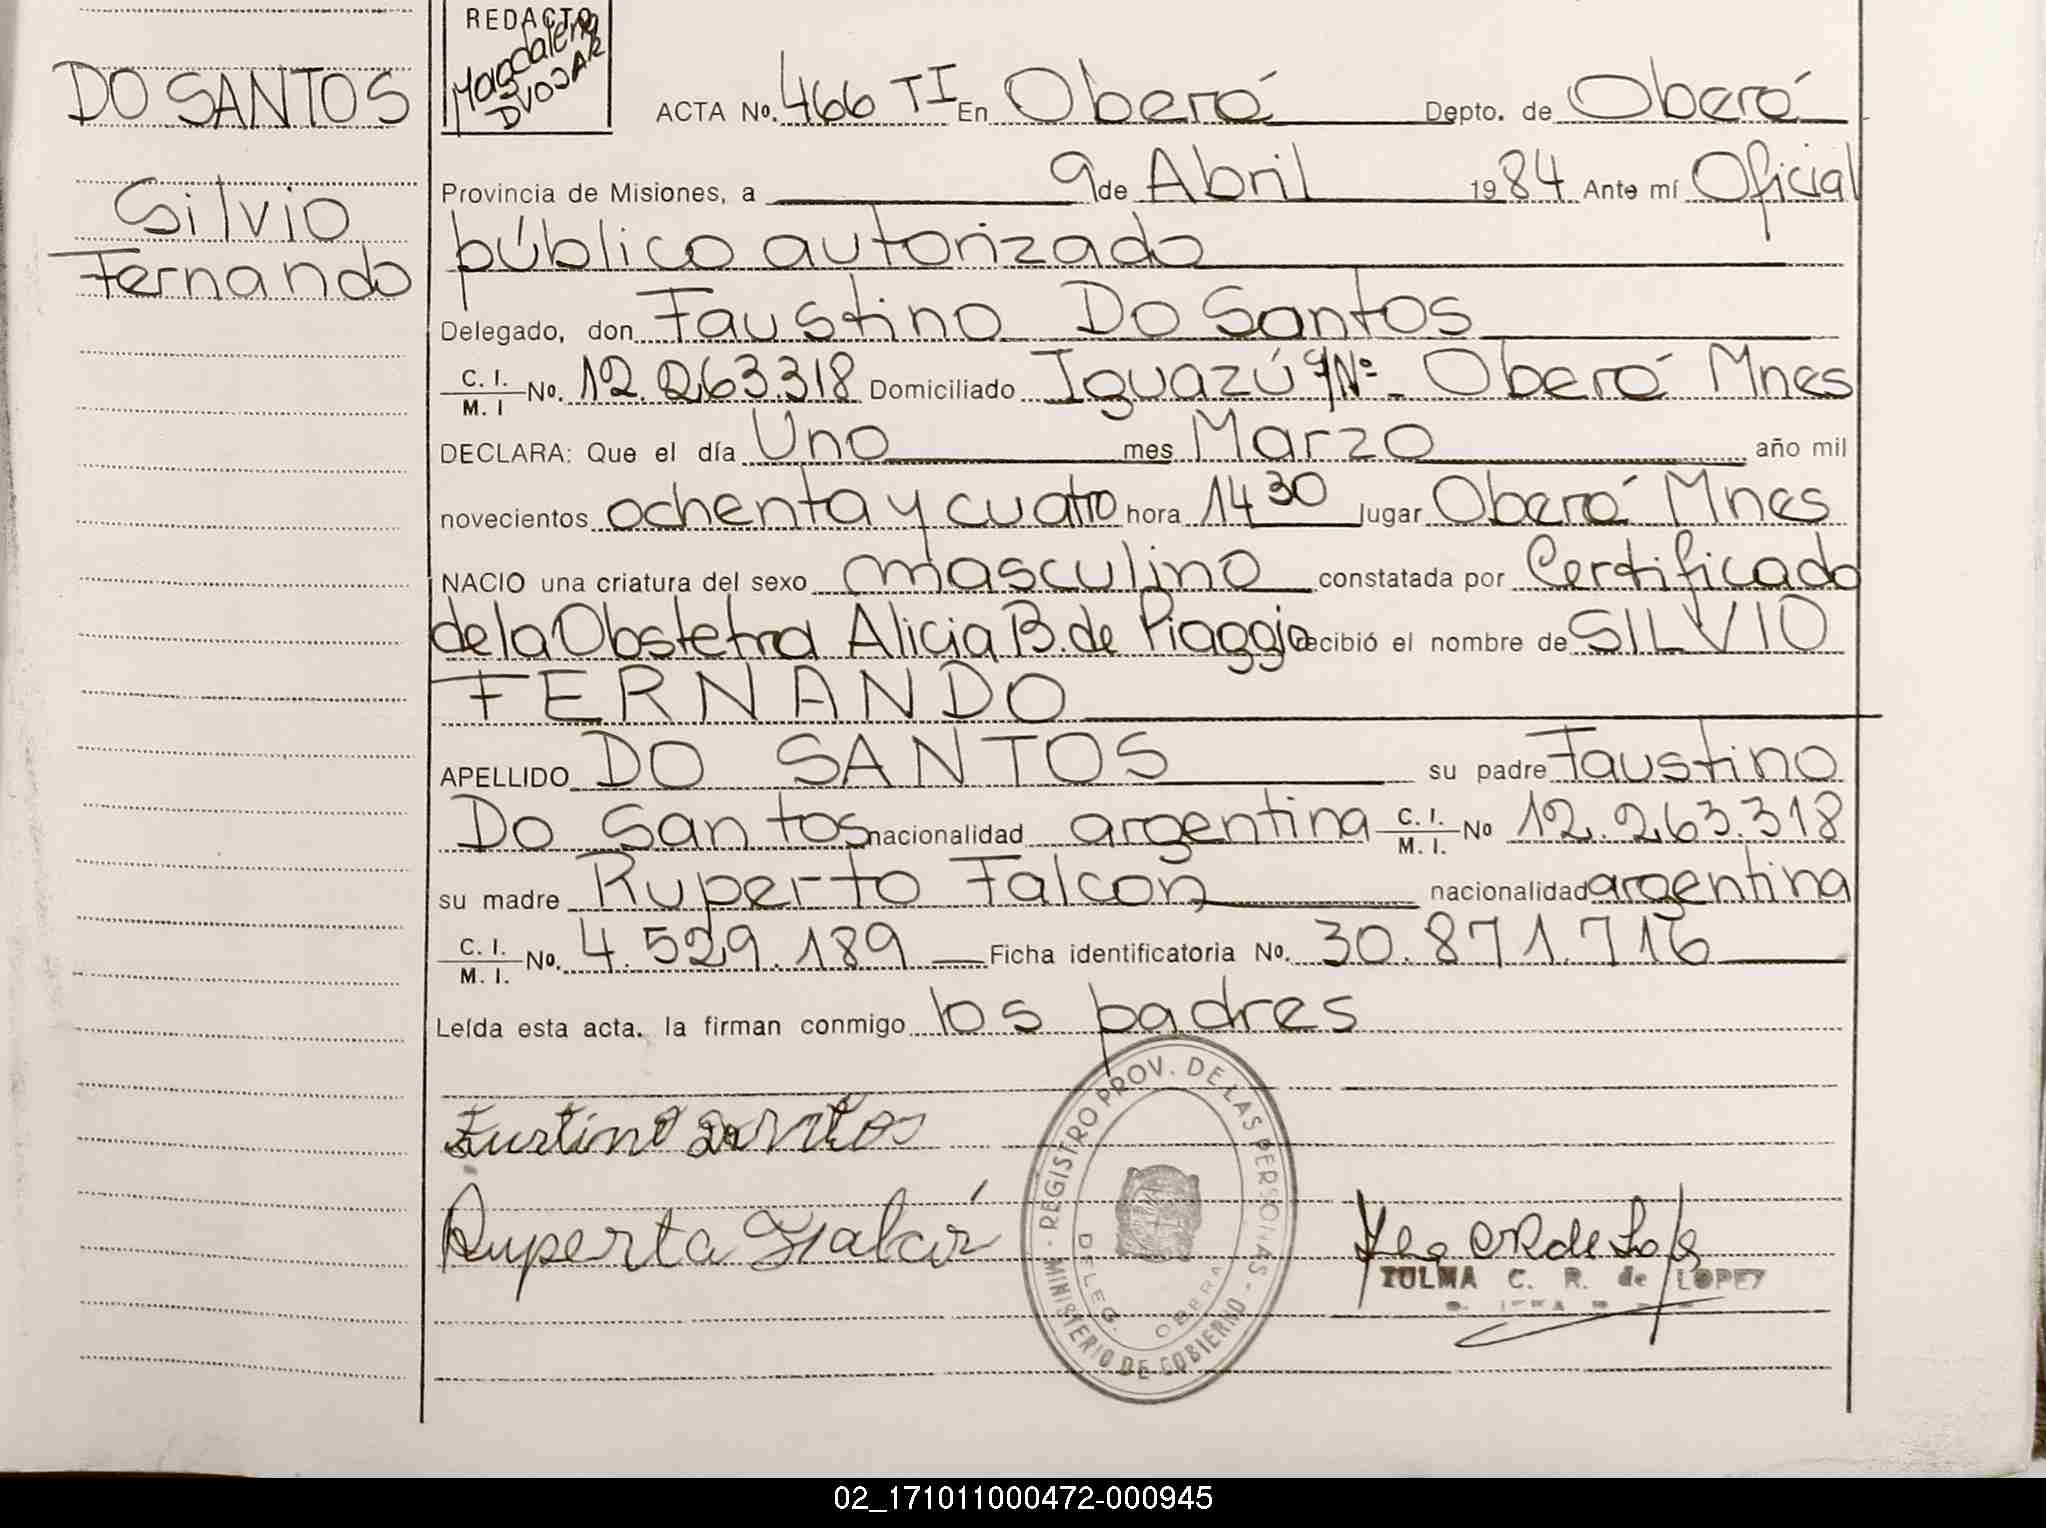 REDACTO
Magdalena
DVOJAK
DO SANTOS
Silvio
Fernando
ACTA No. 466 TI En Oberá Depto. de Oberá
Provincia de Misiones, a 9 de Abril 1984 Ante mí Oficial
público autorizado
Delegado, don Faustino Do Santos
C. I. / M. I No. 12.263.318 Domiciliado Iguazú s/Nº - Oberá Mnes
DECLARA: Que el día Uno mes Marzo año mil
novecientos ochenta y cuatro hora 14 30 lugar Oberá Mnes
NACIO una criatura del sexo masculino constatada por Certificado
de la Obstetra Alicia B. de Piaggio recibió el nombre de SILVIO
FERNANDO
APELLIDO DO SANTOS su padre Faustino
Do Santos nacionalidad argentina C. I. / M. I. No 12.263.318
su madre Ruperto Falcon nacionalidad argentina
C. I. / M. I. No. 4.529.189 Ficha identificatoria No. 30.871.716
Leída esta acta. la firman conmigo los padres
Ruperta Falcón
REGISTRO PROV. DE LAS PERSONAS - MINISTERIO DE GOBIERNO -
DELEG. OBERA
ZULMA C. R. de LOPEZ
02_171011000472-000945